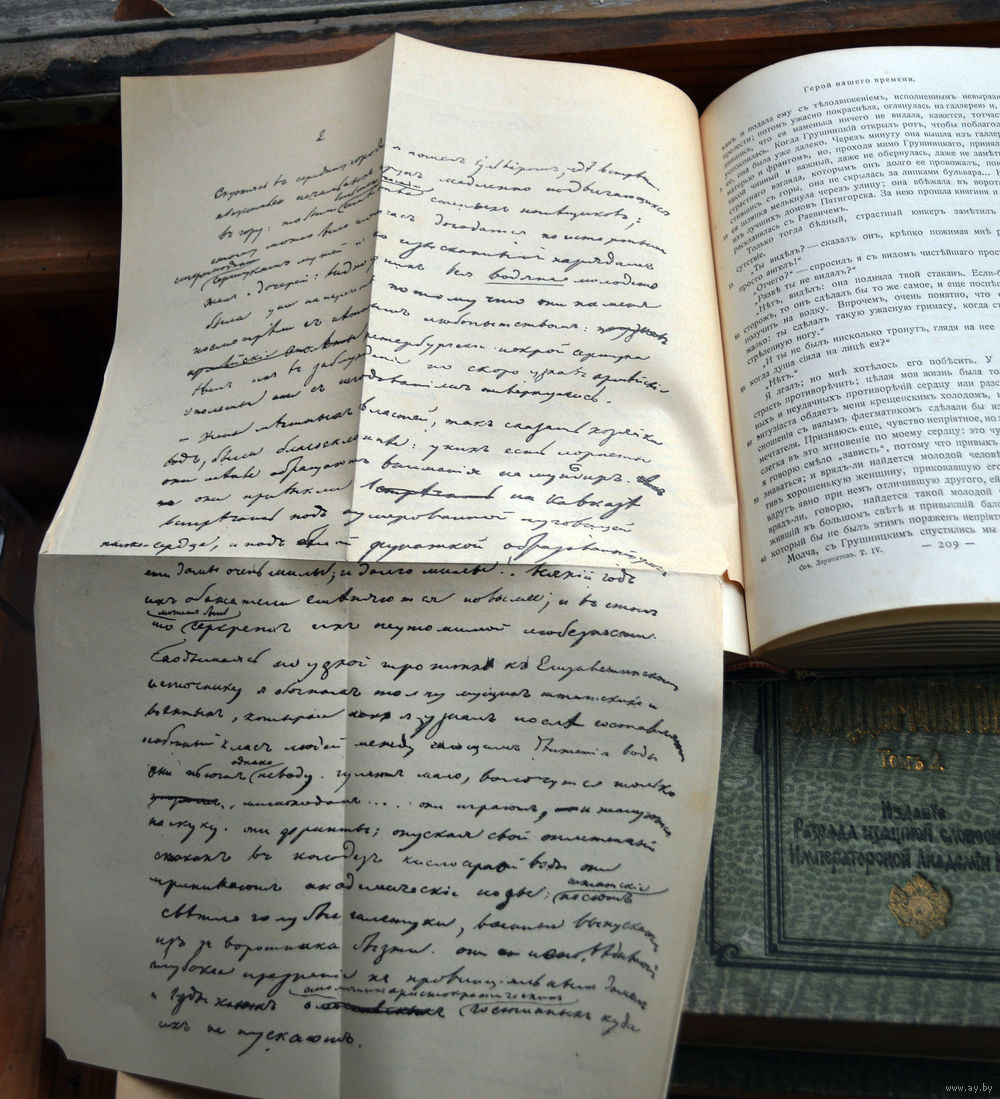 2
Спустясь въ середину города я пошелъ бульваромъ, гдѣ встрѣ
нѣсколько печальныхъ группъ медленно подымающихся
въ гору: то были степныхъ помещиковъ;
можно было тотчасъ догадаться по истертымъ
сертукамъ мужей и по изысканнымъ нарядамъ
женъ и дочерей: видно у нихъ вся водяная молодежь
была уже на перечетѣ, потому что они на меня
посмотрѣли съ нѣжнымъ любопытствомъ:
петербургскій покрой сертука
ихъ въ заблужденіе но скоро узнавъ армейскіе
эполеты они съ негодованіемъ отвернулись.
– Жены мѣстныхъ властей, такъ сказать хозяйки
водъ, были благосклоннѣе: у нихъ есть лорнеты
они менѣе обращаютъ вниманія на мундиръ.
но они привыкли встрѣчать на Кавказѣ
встрѣчать подъ нумерованной пуговицей
пылкое сердце, и подъ бѣлой фуражкой образованный
эти дамы очень милы; и долго милы! Всякій годъ
ихъ обожатели смѣняются новыми; и въ этомъ
то можетъ быть секретъ ихъ неутомимой любезности.
Подымаясь по узкой тропинкѣ къ Елизаветинскому
источнику я обогналъ толпу мущинъ штатскихъ и
военныхъ, которые я узналъ послѣ составляютъ
особенный класъ людей между чающими движенія воды
они пьютъ однако не воду. гуляютъ мало, волочутся только
мимоходомъ.... они играютъ, и жалуются
на скуку. они франты; опуская свой оплетенный
стаканъ въ колодезь кислосѣрной воды они
принимаютъ академическіе позы: штатскіе носютъ
свѣтло голубые галстуки, военные выпускаютъ
изъ за воротника брызжи. они
глубокое презрѣніе къ провинціальнымъ домамъ
и о аристократическихъ гостинныхъ куда
ихъ не пускаютъ.
Герой нашего времени.
канъ и подала ему съ тѣлодвиженіемъ, исполненнымъ невырази
прелести; потомъ ужасно покраснѣла, оглянулась на галлерею и,
дившись, что ея маменька ничего не видала, кажется, тотчас
успокоилась. Когда Грушницкій открылъ ротъ, чтобы поблагод
ее, она была уже далеко. Черезъ минуту она вышла изъ галлер
матерью и франтомъ, но, проходя мимо Грушницкаго, принял
такой чинный и важный, даже не обернулась, даже не замѣти
страстнаго взгляда, которымъ онъ долго ее провожалъ, пок
стившись съ горы, она не скрылась за липками бульвара... Н
ея шляпка мелькнула черезъ улицу; она вбѣжала въ ворот
изъ лучшихъ домовъ Пятигорска. За нею прошла княгиня и
раскланялась съ Раевичемъ.
Только тогда бѣдный, страстный юнкеръ замѣтилъ
сутствіе.
„Ты видѣлъ? — сказалъ онъ, крѣпко пожимая мнѣ р
просто ангелъ!“
„Отчего?“ — спросилъ я съ видомъ чистѣйшаго прос
„Развѣ ты не видалъ?“
„Нѣтъ, видѣлъ: она подняла твой стаканъ. Если-б
сторожъ, то онъ сдѣлалъ бы то же самое, и еще поспѣ
получить на водку. Впрочемъ, очень понятно, что
жалко: ты сдѣлалъ такую ужасную гримасу, когда ст
стрѣленную ногу.“
„И ты не былъ нисколько тронутъ, глядя на нее
когда душа сіяла на лицѣ ея?“
„Нѣтъ.“
Я лгалъ; но мнѣ хотѣлось его побѣсить. У
страсть противорѣчить; цѣлая моя жизнь была то
ныхъ и неудачныхъ противорѣчій сердцу или разс
энтузіаста обдаетъ меня крещенскимъ холодомъ,
сношенія съ вялымъ флегматикомъ сдѣлали бы из
мечтателя. Признаюсь еще, чувство непріятное, но
слегка въ это мгновеніе по моему сердцу: это чу
я говорю смѣло „зависть“, потому что привыкъ
знаваться; и врядъ-ли найдется молодой человѣ
тивъ хорошенькую женщину, приковавшую его
вдругъ явно при немъ отличившую другого, ей
врядъ-ли, говорю, найдется такой молодой
жившій въ большомъ свѣтѣ и привыкшій бал
который бы не былъ этимъ пораженъ непріят
Молча, съ Грушницкимъ спустились мы
Соч. Лермонтова. Т. IV.
— 209 —
Томъ 2.
Изданіе
Разряда изящной словесн
Императорской Академіи
www.ay.by